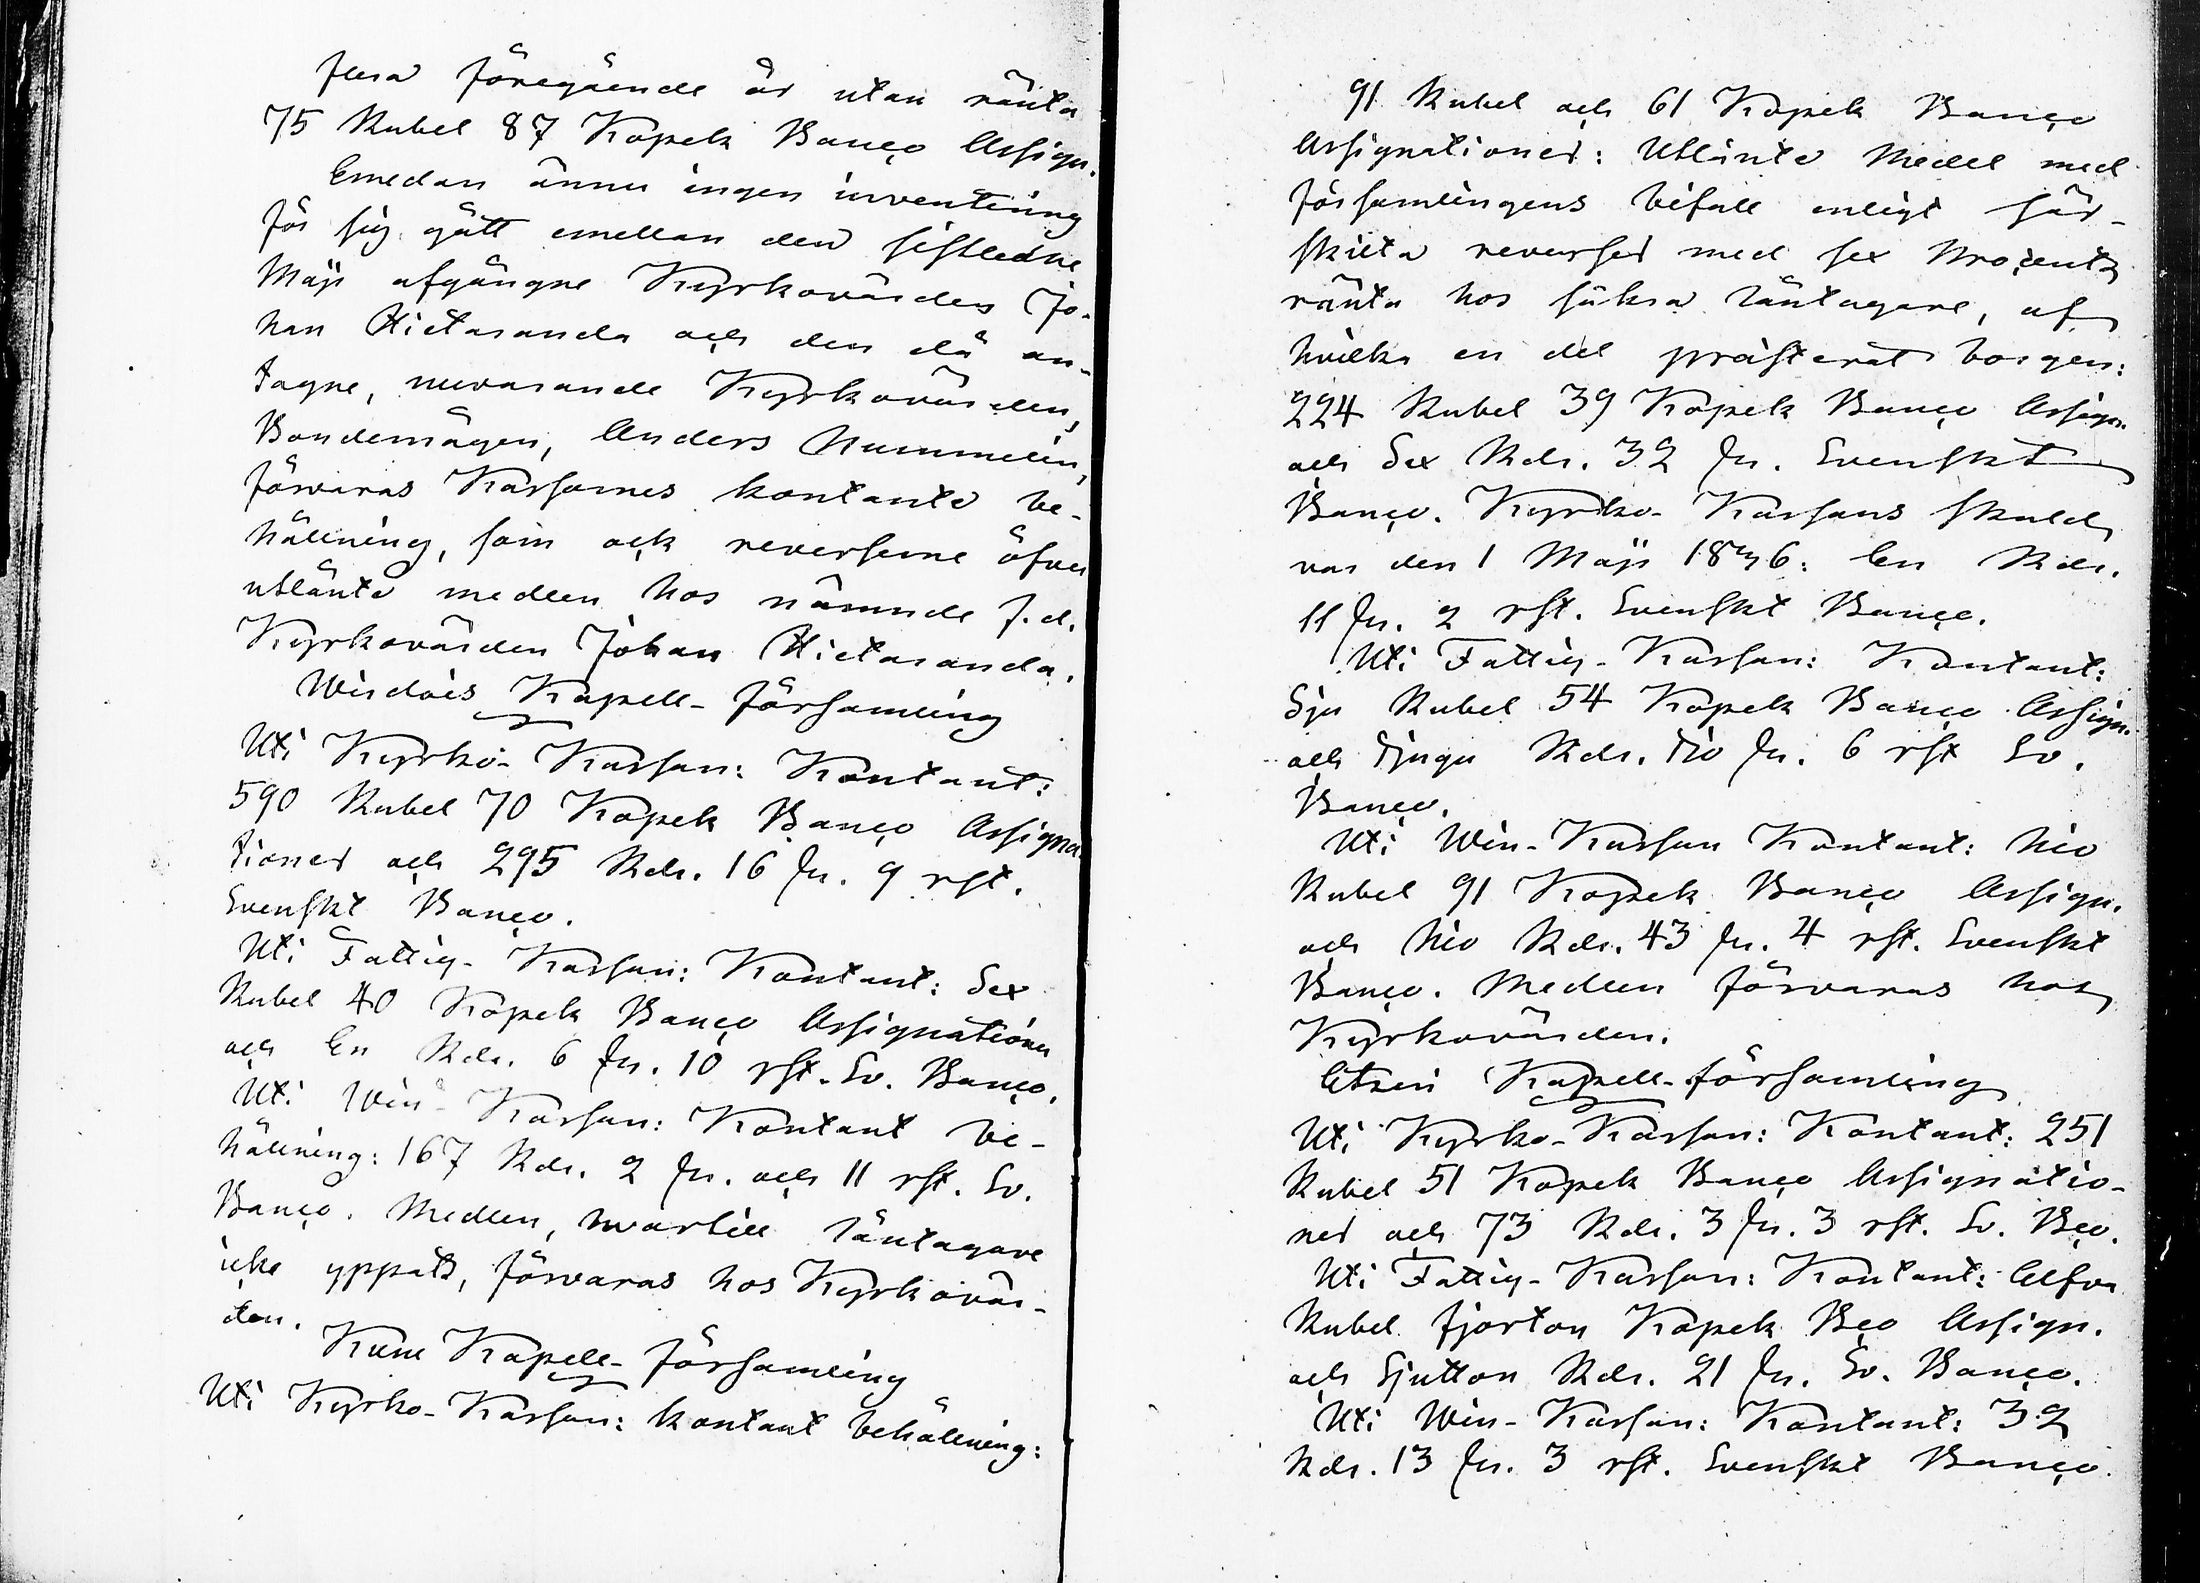 flera föregående år utan ränta
75 Rubel 87 Kopek Banco Assign.
Emedan ännu ingen inventering
för sig gått emellan den sistledne
Maji afgångne Kyrkovärden Jo-
han Hietaranda och den då an-
tagne, nuvarande Kyrkovärden,
Bondemågen, Anders Nummelin,
förvaras Kassornes kontanta be-
hållning, som ock reverserne öfver
utlånta medlen hos nämnde f.d.
Kyrkovärden Johan Hietaranda.
Wirdois Kapell-församling
Uti Kyrko-Kassan: Kontant:
590 Rubel 70 Kopek Banco Assigna
tioner och 295 Rdr. 16 sr. 9 rst.
Svenskt Banco.
Uti Fattig-Kassan: Kontant: Sex
Rubel 40 Kopek Banco Assignationer
och En Rdr. 6 sr. 10 rst. Sv. Banco.
Uti Win-Kassan: Kontant be-
hållning: 167 Rdr. 2 sr. och 11 rst. Sv.
Banco. Medlen, hvartill låntagare
icke yppats, förvaras hos Kyrkovär-
den.
Kuru Kapell-församling
Uti Kyrko-Kassan: kontant behållning:
91 Rubel och 61 Kopek Banco
Assignationer: Utlånte Medel med
församlingens bifall enligt sär-
skilta reverser med sex Procents
ränta hos säkra låntagare, af
hvilka en del præsterat borgen:
224 Rubel 39 Kopek Banco Assign.
och Sex Rdr. 32 sr. Svenskt
Banco. Kyrko-Kassans skuld
var den 1 Maji 1836: En Rdr.
11 sr. 2 rst. Svenskt Banco.
Uti Fattig-Kassan: Kontant:
Sju Rubel 54 Kopek Banco Assign.
och Tjugu Rdr. Tio sr. 6 rst Sv.
Banco.
Uti Win-Kassan Kontant: Nio
Rubel 91 Kopek Banco Assign.
och Nio Rdr. 43 sr. 4 rst. Svenskt
Banco. Medlen förvaras hos
Kyrkovärden.
Etseri Kapell-församling
Uti Kyrko-Kassan: Kontant: 251
Rubel 51 Kopek Banco Assignatio-
ner och 73 Rdr. 3 sr. 3 rst. Sv. Bco.
Uti Fattig-Kassan: Kontant: Elfva
Rubel fjorton Kopek Bco Assign.
och Sjutton Rdr. 21 sr. Sv. Banco.
Uti Win-Kassan: Kontant: 32
Rdr. 13 sr. 3 rst. Svenskt Banco.